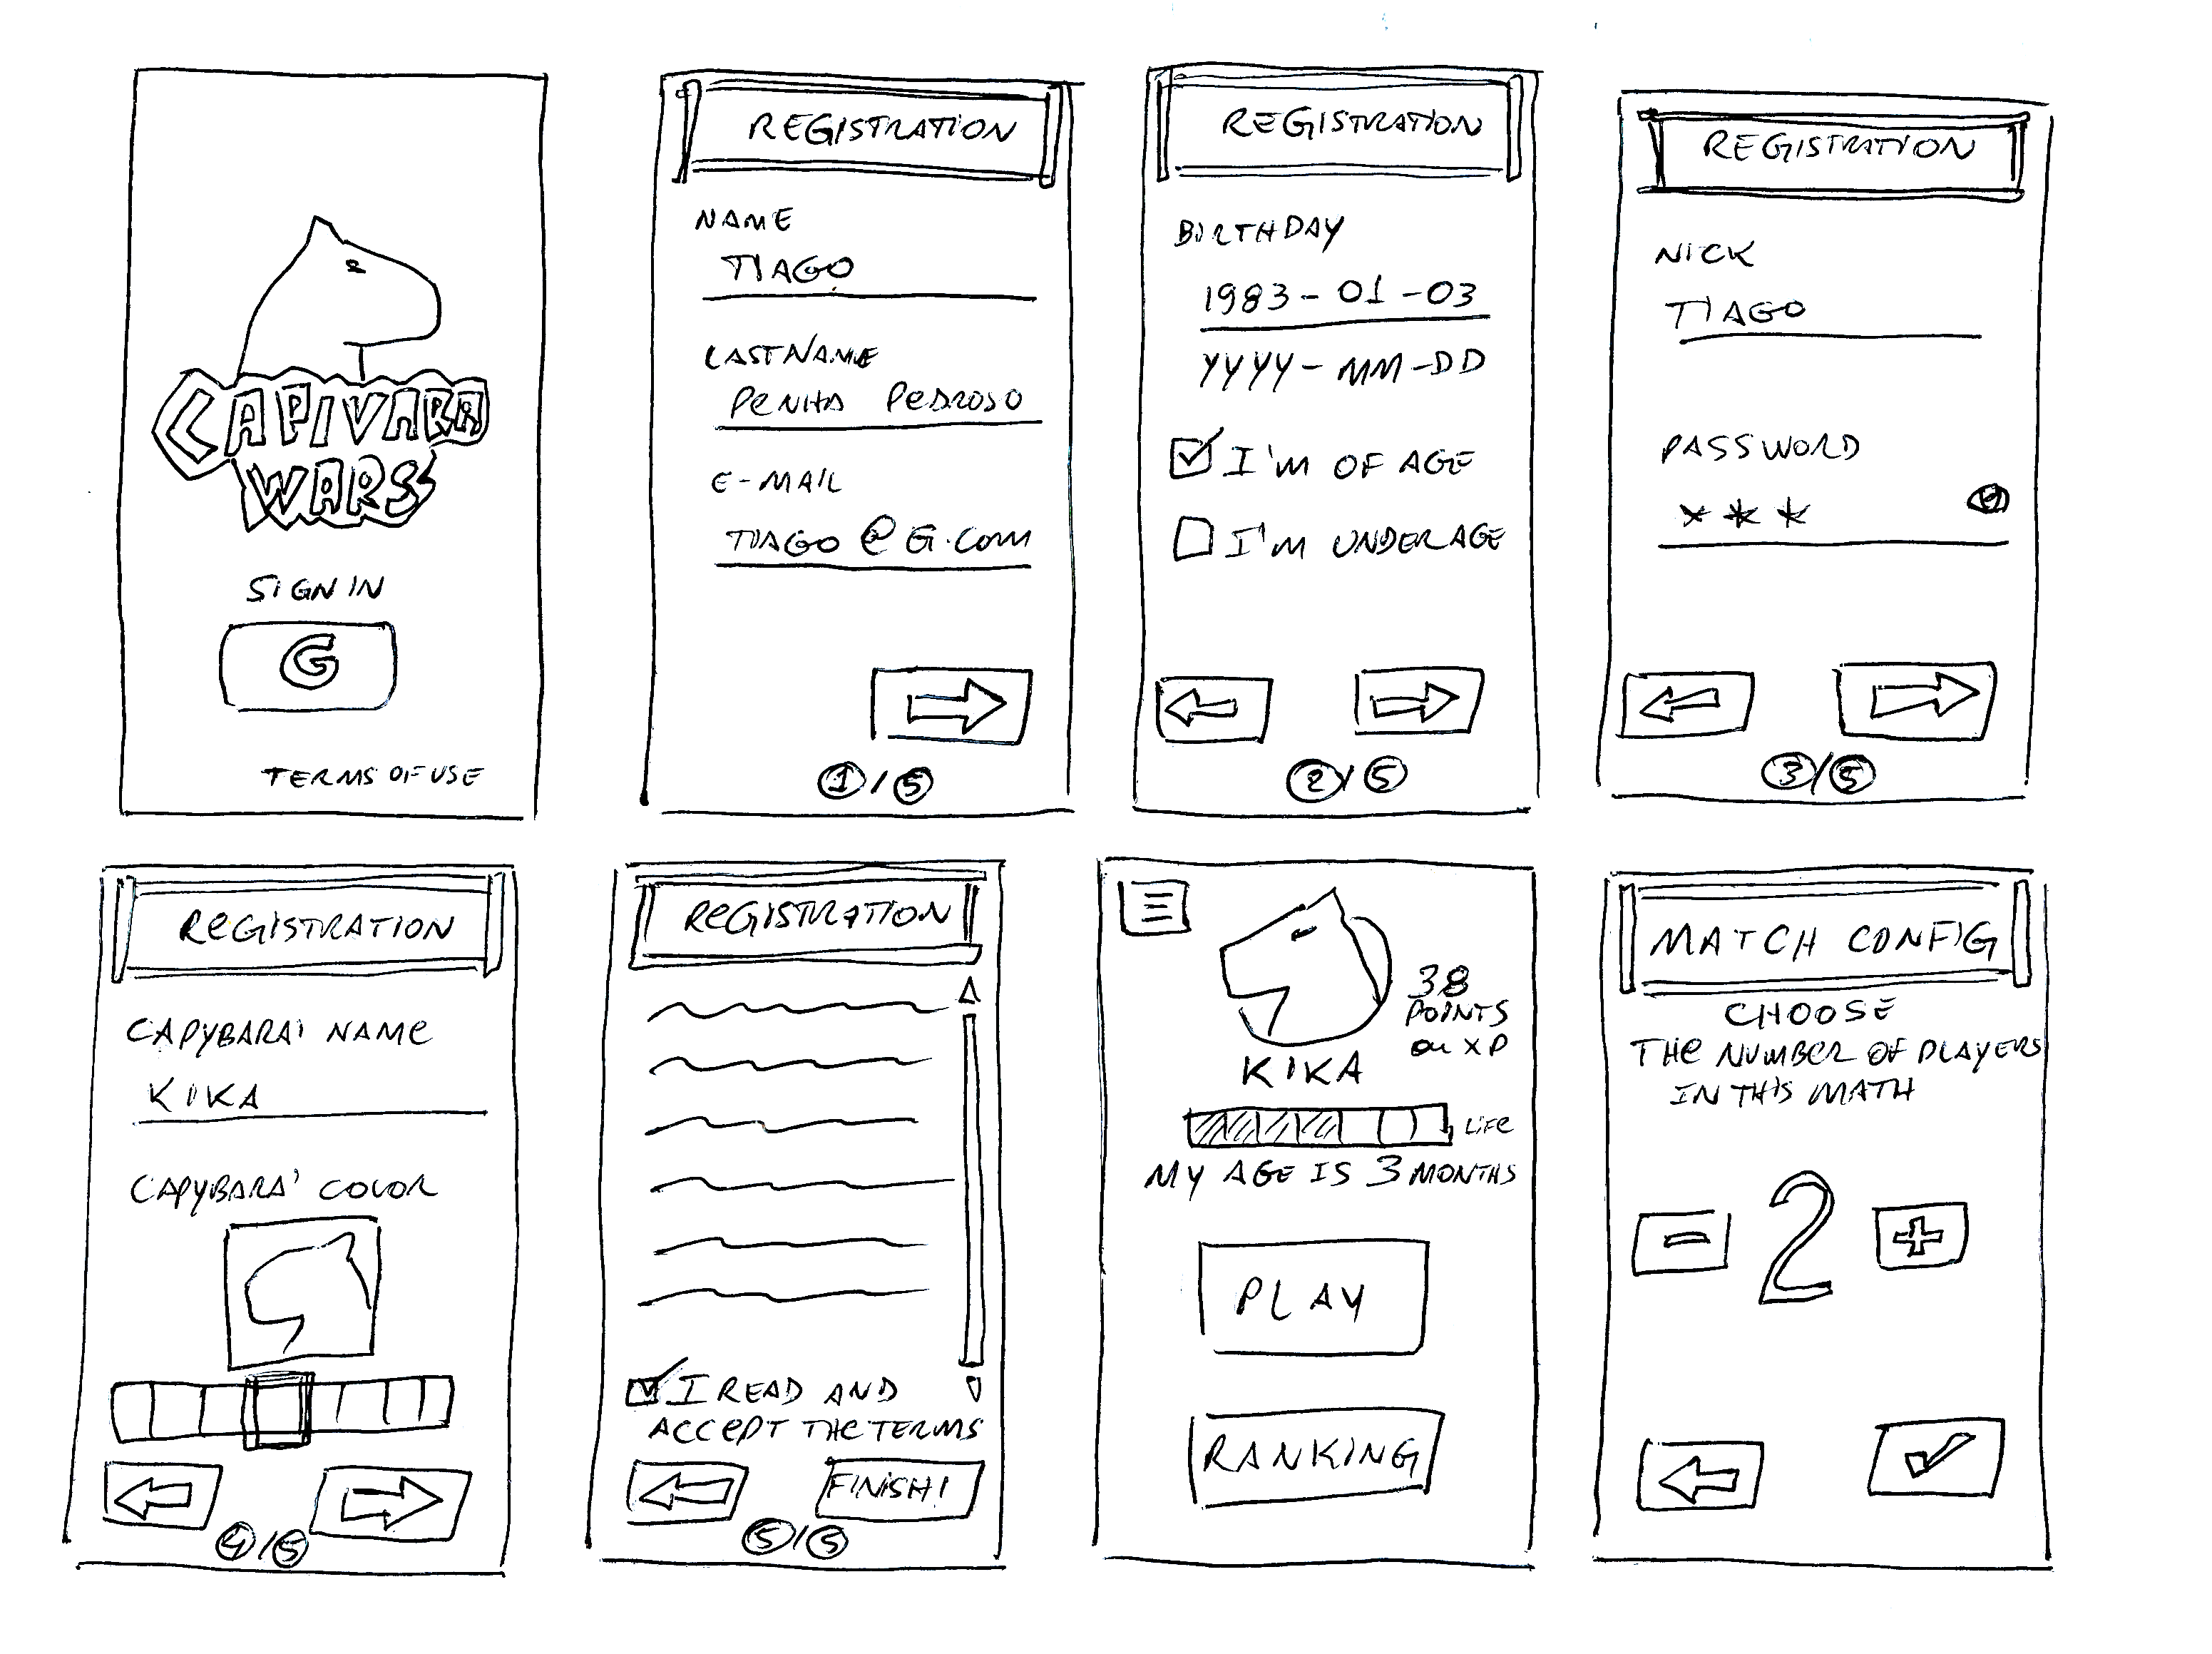 CAPIVARA
WARS
SIGN IN
G
TERMS OF USE
REGISTRATION
NAME
TIAGO
LASTNAME
PENHA PEDROSO
E-MAIL
TIAGO@G.COM
1/5
REGISTRATION
BIRTHDAY
1983-01-03
YYYY-MM-DD
I'M OF AGE
I'M UNDERAGE
2/5
REGISTRATION
NICK
TIAGO
PASSWORD
***
3/5
REGISTRATION
CAPYBARA' NAME
KIKA
CAPYBARA' COLOR
4/5
REGISTRATION
I READ AND
ACCEPT THE TERMS
FINISH!
5/5
38
POINTS
OU XP
KIKA
LIFE
MY AGE IS 3 MONTHS
PLAY
RANKING
MATCH CONFIG
CHOOSE
THE NUMBER OF PLAYERS
IN THIS MATH
- 2 +